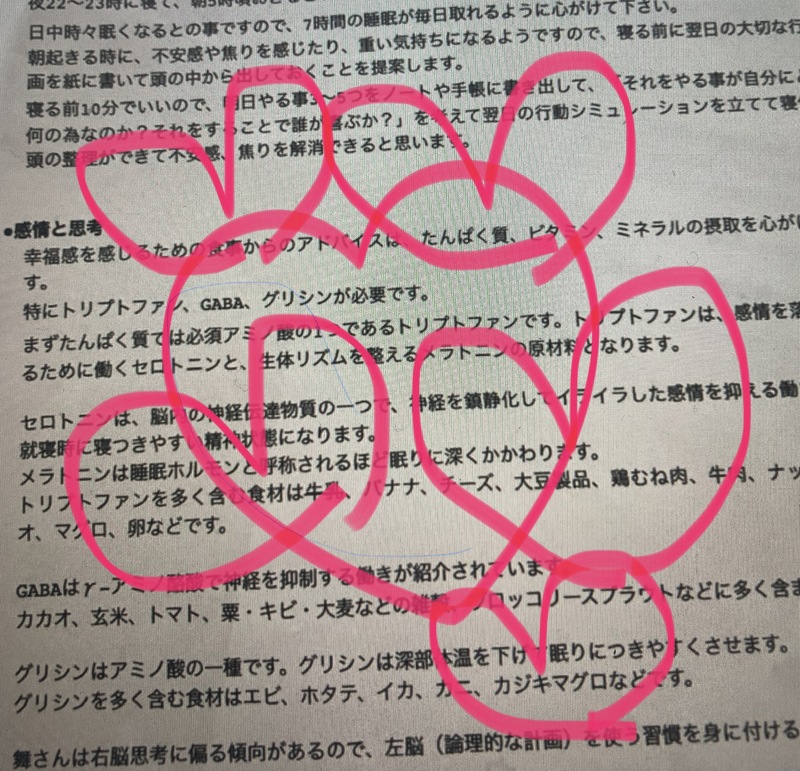 夜22〜23時に寝て、朝5時頃
日中時々眠くなるとの事ですので、7時間の睡眠が毎日取れるように心がけて下さい。
朝起きる時に、不安感や焦りを感じたり、重い気持ちになるようですので、寝る前に翌日の大切な行
画を紙に書いて頭の中から出しておくことを提案します。
寝る前10分でいいので、明日やる事3〜5つをノートや手帳に書き出して、「それをやる事が自分に
何の為なのか?それをすることで誰が喜ぶか?」を考えて翌日の行動シミュレーションを立てて寝
頭の整理ができて不安感、焦りを解消できると思います。
●感情と思考
幸福感を感じるための食事からのアドバイスは、たんぱく質、ビタミン、ミネラルの摂取を心が
す。
特にトリプトファン、GABA、グリシンが必要です。
まずたんぱく質では必須アミノ酸の1つであるトリプトファンです。トリプトファンは、感情を落
るために働くセロトニンと、生体リズムを整えるメラトニンの原材料となります。
セロトニンは、脳内の神経伝達物質の一つで、神経を鎮静化してイライラした感情を抑える働
就寝時に寝つきやすい精神状態になります。
メラトニンは睡眠ホルモンと呼称されるほど眠りに深くかかわります。
トリプトファンを多く含む食材は牛乳、バナナ、チーズ、大豆製品、鶏むね肉、牛肉、ナッ
オ、マグロ、卵などです。
GABAはγ-アミノ酪酸で神経を抑制する働きが紹介されています。
カカオ、玄米、トマト、粟・キビ・大麦などの雑穀、ブロッコリースプラウトなどに多く含ま
グリシンはアミノ酸の一種です。グリシンは深部体温を下げ眠りにつきやすくさせます。
グリシンを多く含む食材はエビ、ホタテ、イカ、カニ、カジキマグロなどです。
舞さんは右脳思考に偏る傾向があるので、左脳（論理的な計画）を使う習慣を身に付ける